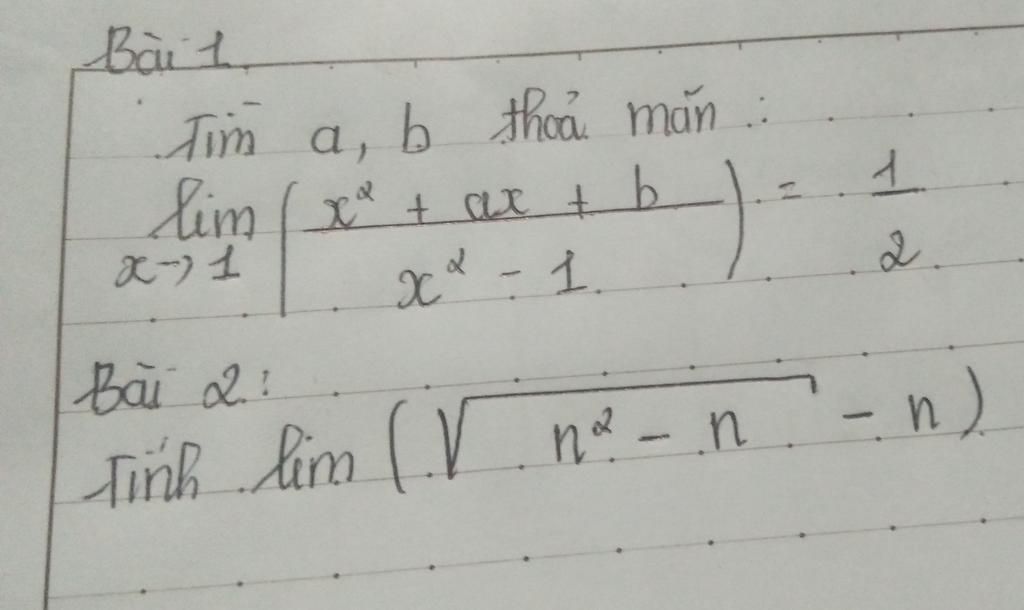 Bài 1
Tìm a, b thoả mãn :
lim x→1 ( (x² + ax + b) / (x² - 1) ) = 1/2
Bài 2:
Tính lim (√(n² - n) - n)